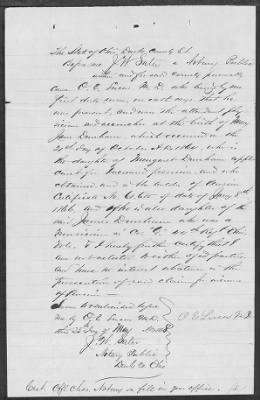 The State of Ohio Darke County SS
Before me J. W. Sater a Notary Public
within and for said County personally
came O. E. Lucas M.D. who being by me
first duly sworn, on oath says that he
was present, and was the attendant phy
sician and accoucher at the birth of Mary
Jane Dunham which occurred on the
20st day of October A.D. 1861, who is
the daughter of Margaret Dunham appli
cant for Increased pension and who
obtained and is the holder of Pension
Certificate No. of date of
1866, and of who is daughter of the
said James Dunham who was a
in Co. G. 40th Regt Ohio
Vols. & I hereby further certify that I
am not related to either of said parties
and have no interest whatever in the
prosecution of said claim for increase
of Pension
Sworn & subscribed before
me by O. E. Lucas
this day of May
O E Lucas M.D.
J. W. Sater
Notary Public
Darke Co Ohio
Cert. Off. Char. Notary on file in your office.